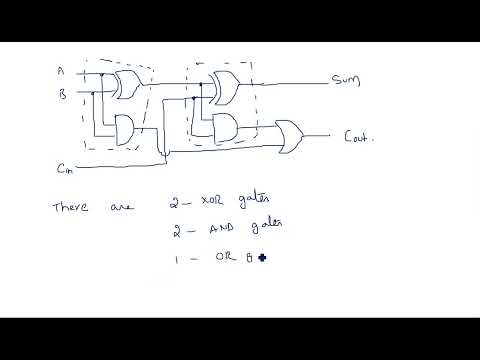 A
B
Cin
Sum
Cout.
There are 2 - XOR gates
2 - AND gates
1 - OR g